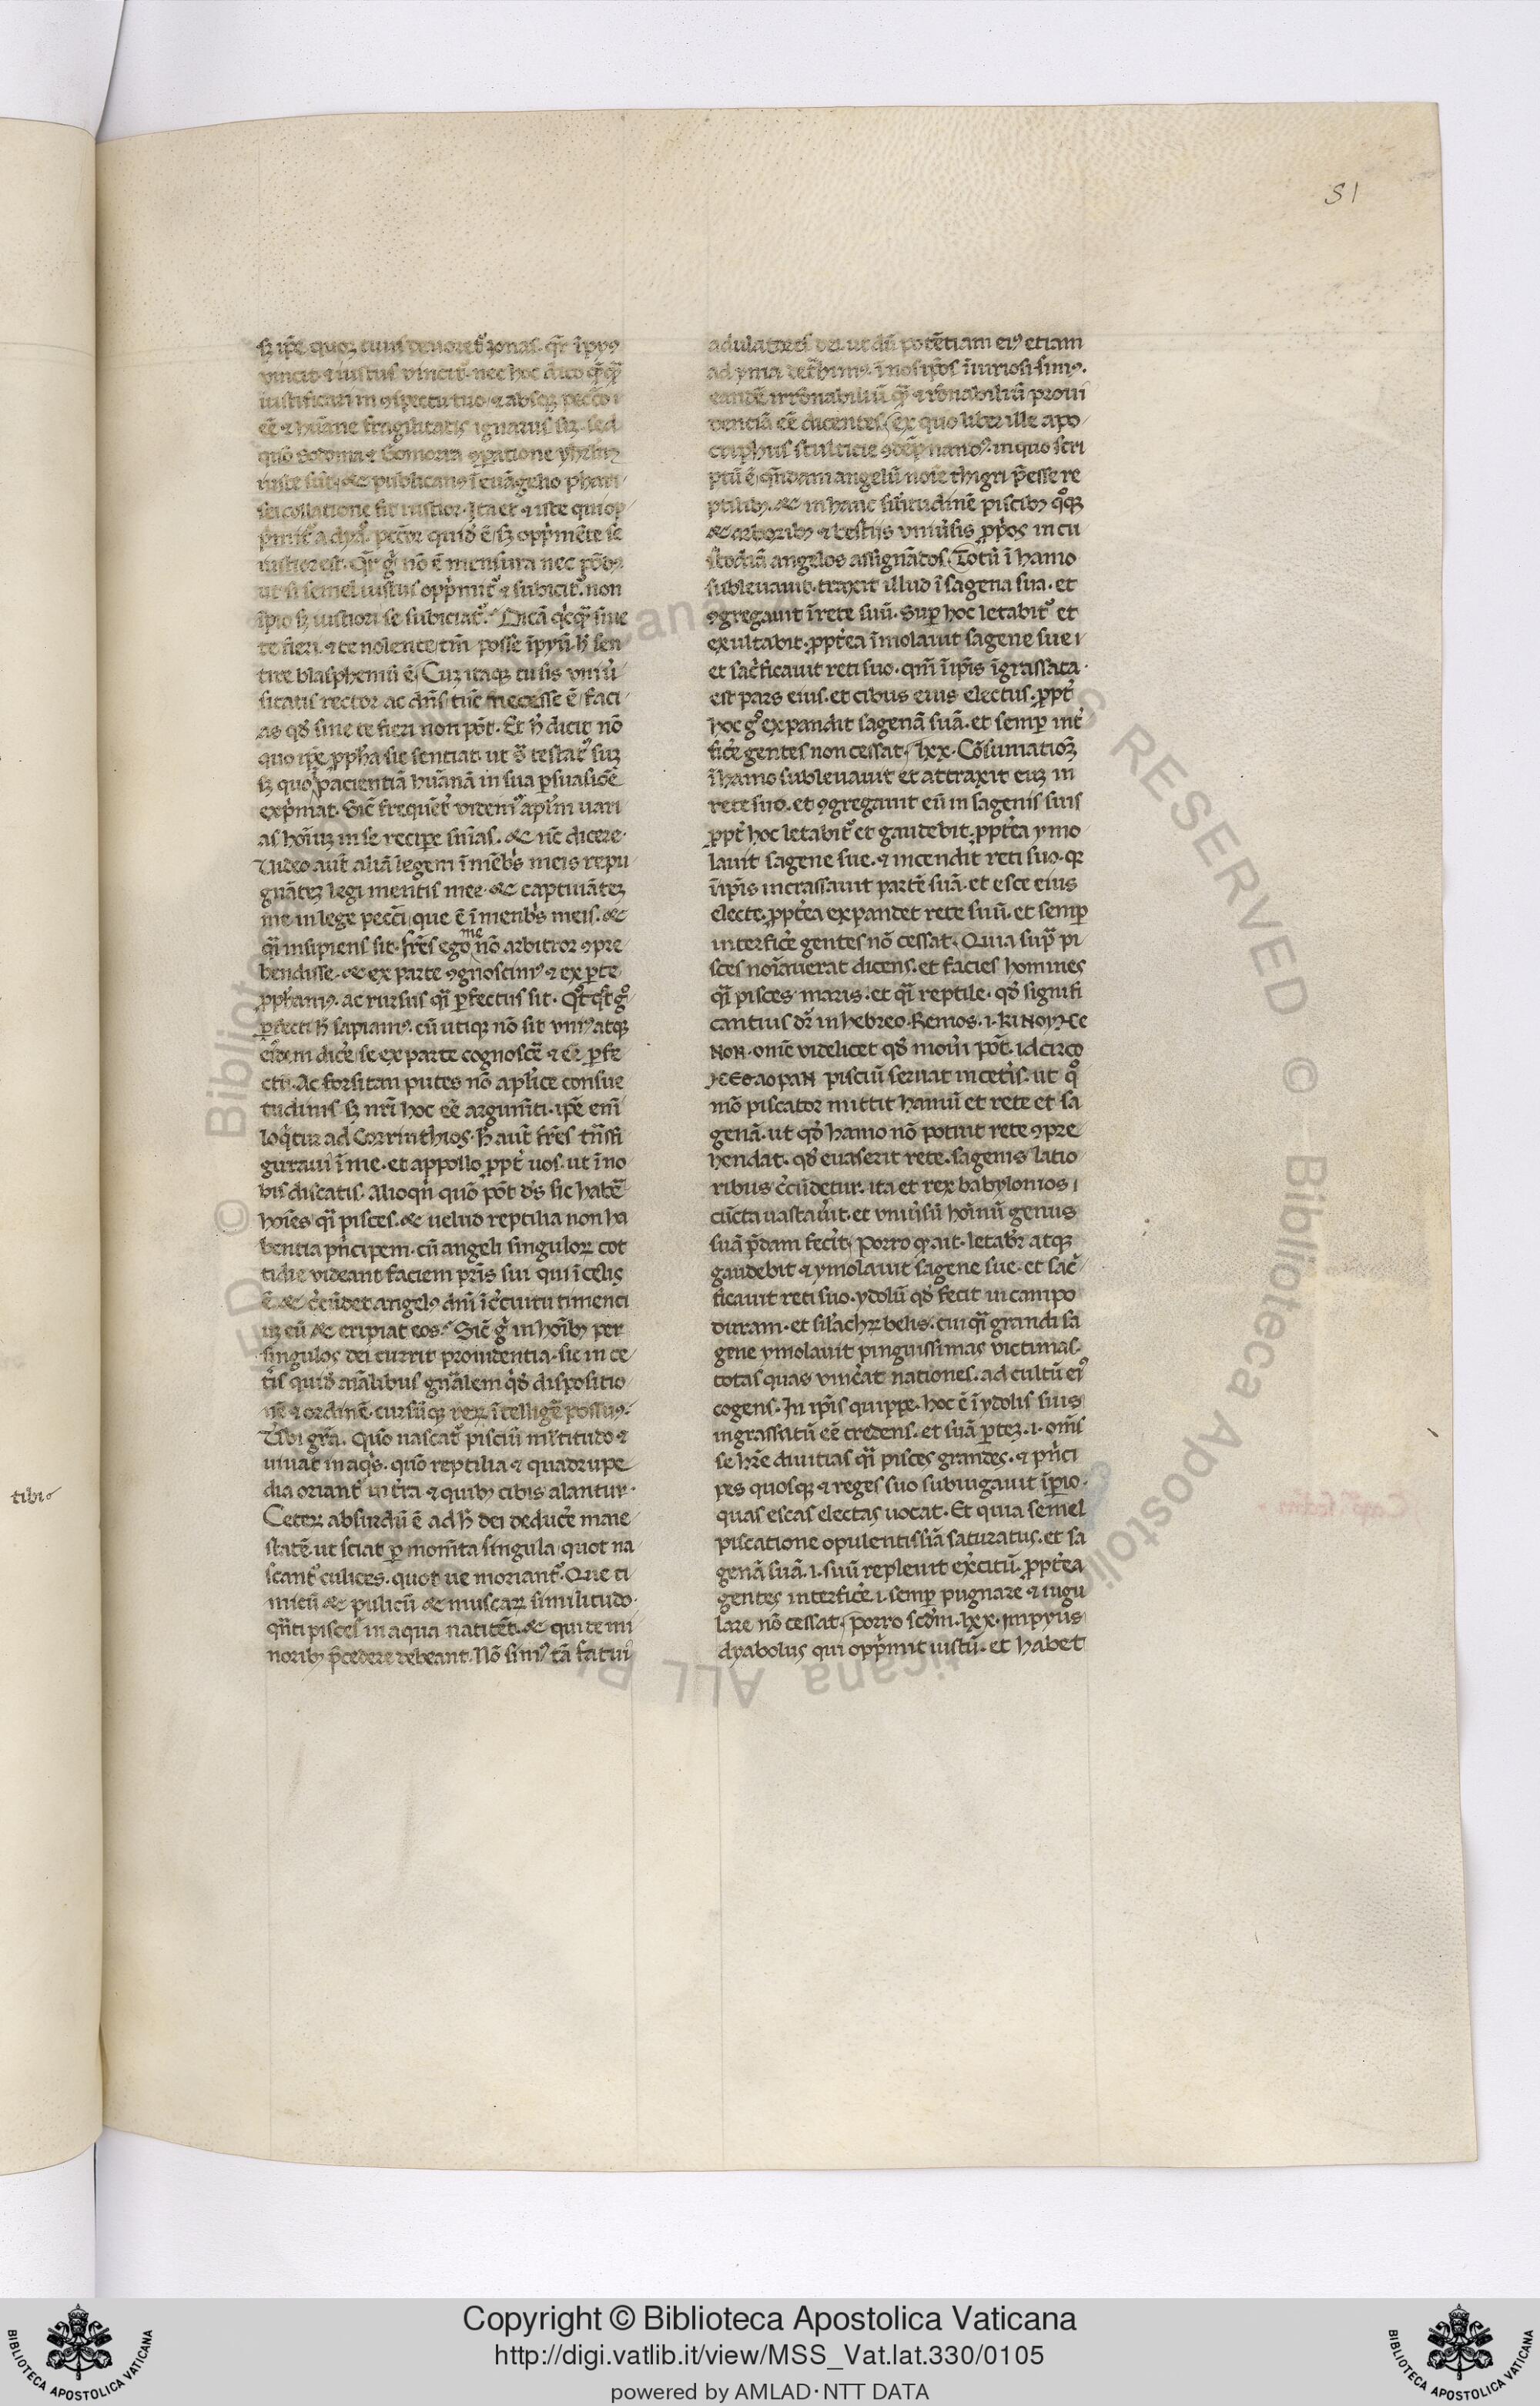 51
sȝ ip̃e quoȝ cum deuoret᷑ ionas. q̃r ĩpyꝰ
vincit ⁊ iustus vincit᷑. nec hoc dico
iustificari in ꝯspectu tuo ⁊ absqꝫ pecc̃o
eẽ ⁊ hũane fragilitatis ignarus siȝ. sed
quõ sodoma ⁊ Gomorra ꝯparatione
iuste sũt. ⁊c publicanꝰ ĩ euãgelio phari
sei collatione fit iustior. Ita et ⁊ iste qui op
pecc̃or quid ẽ sȝ opp̃mẽte se
iustior est. q̃r gͦ nõ ẽ mensura nec
ut si semel iustus opp̃mit᷑ ⁊ subicit᷑. non
ĩpio sȝ iustiori se subiciat᷑. Dicã sine
te fieri. ⁊ te nolente tm̃ posse ĩpyũ. h̃ sen
tire blasphemũ ẽ. Cuȝ itaqꝫ tu sis vniu̾
sitatis rector ac dñs. tũc necesse ẽ faci
as qđ sine te fieri non põt. Et h̃ dicit nõ
quo ip̃e ꝓpha sic sentiat. ut testat᷑ suȝ
sȝ quo pacientiã hũanã in sua ꝑsuasiõe
exp̃mat. Sic̃ frequẽt᷑ videmꝰ apl̃m uari
as hoĩuȝ in se reciꝑe sñias. ⁊c nũc dicere.
Video aut̃ aliã legem ĩ mẽbr̃s meis repu
gnãteȝ legi mentis mee. ⁊c captiuãteȝ
me in lege pecc̃i que ẽ ĩ menbr̃s meis. ⁊c
q̃i insipiens sit. fr̃es ego me nõ arbitror ꝯpre
hendisse. ⁊c ex parte ꝯgnoscimꝰ ⁊ ex ꝑte
ꝓphamꝰ. ac rursus q̃i ꝑfectus sit. gͦ
ꝑfecti h̃ sapiamꝰ. cũ utiqꝫ nõ sit vniꝰ atqꝫ
eiusdem dic̃e se ex parte cognosc̃e ⁊ eẽ ꝑfe
ctũ. Ac forsitan putes nõ aplĩce consue
tudinis sȝ nr̃i hoc eẽ argum̃ti. ip̃e eni᷑
loq̃tur ad Corrinthios. h̃ aut̃ fr̃es tñsfi
guraui ĩ me. et appollo ꝓpt̃ uos. ut ĩ no
bis discatis. Alioq̃n quõ põt ds̃ sic habẽ
hoĩes q̃i pisces. ⁊c uelud reptilia non ha
bentia pñcipem. cũ angeli singuloꝝ cot
tidie videant faciem pr̃is sui qui ĩ celis
ẽ. ⁊c c̃cũdet angelꝰ dñi ĩ c̃cuitu timenti
uȝ eũ ⁊c eripiat eos. Sic̃ g̃ in hoĩbꝫ per
singulos dei currit prouidentia. sic in ce
t̃is quid᷑ aĩalibus gñalem q̃dẽ dispositio
nẽ ⁊ ordinẽ. cursũqꝫ reꝝ ĩtelligẽ possuꝰ.
Vb̃i gr̃a. Quo nascat᷑ pisciũ ml̃titudo ⁊
uiuat in aq̃s. quõ reptilia ⁊ quadrupe
dia oriant᷑ in t̃ra ⁊ quibꝫ cibis alantur.
Ceteꝝ absurdũ ẽ ad h̃ dei deduc̃e maie
statẽ. ut sciat ꝑ mom̃ta singula quot na
scant᷑ culices. quot ue moriant᷑. Que ci
micũ ⁊c pulicũ ⁊c muscaꝝ similitudo.
q̃nti pisces in aqua natitẽt. ⁊c qui de mi
noribꝫ p̃cedere debeant. Nõ simꝰ tã fatui
adulatores dei. ut dũ potẽtiam eiꝰ etiam
ad yma det̃himꝰ. ĩ nos ip̃os ĩiuriosi simꝰ.
eandẽ irrõnabiliũ q̃ ⁊ rõnabiliũ proui
denciã eẽ dicentes. Ex quo liber ille apo
criphus stulticie ꝯdẽpnandꝰ. in quo scri
ptũ ẽ q̃ndam angelũ noĩe thigri p̃esse re
ptilibꝫ. ⁊c in hanc sil̃itudinẽ piscibꝫ q̊qꝫ
⁊c arboribꝫ ⁊ bestiis vniu̾sis ꝓp̃os in cu
stodiã angelos assignãtos. Totũ ĩ hamo
subleuauit. traxit illud ĩ sagena sua. et
ꝯgregauit ĩ rete suũ. Suꝑ hoc letabit᷑ et
exultabit. ꝓpt̃ea ĩmolauit sagene sue
et sac̃ficauit reti suo. qm̃ ĩ ip̃is ĩgrassata
est pars eius. et cibus eius electus. ꝓpt̃
hoc gͦ expandit sagenã suã. et semꝑ int̃
fic̃e gentes non cessat. lxx. Cõsumatiõȝ
ĩ hamo subleuauit et attraxit euȝ in
rete suo. et ꝯgregauit eũ in sagenis suis
ꝓpt̃ hoc letabit᷑ et gaudebit. ꝓpt̃ea ymo
lauit sagene sue. ⁊ incendit reti suo. qꝫ
ĩ ip̃is incrassauit partẽ suã. et esce eius
electe. ꝓpt̃ea expandet rete suũ. et semꝑ
interfic̃e gentes nõ cessat. Quia sup̃ pi
sces noĩauerat dicens. et facies homines
q̃i pisces maris. et q̃i reptile. qđ signifi
cantius dr̃ in hebreo. Remos. i. ΚΙΝΟΥΜΕ
ΝΟΝ. om̃e videlicet qđ mou̾i põt. idcirco
ΜΕΘΑΟΡΑΝ pisciũ seruat in cet̃is. ut qͦ
mõ piscator mittit hamũ et rete et sa
genã. ut qđ hamo nõ potuit rete ꝯpre
hendat. qđ euaserit rete. sagenis latio
ribus c̃cũdetur. ita et rex babylonios
cũcta uastau̾it. et vniu̾sũ hoĩnũ genus
suã p̃dam fec̃it. Porro qꝫ ait. letabr̃ atqꝫ
gaudebit ⁊ ymolauit sagene sue. et sac̃
ficauit reti suo. ydolũ qđ fecit in campo
duram. et sil̃achꝝ belis. cui q̃i grandi sa
gene ymolauit pinguissimas victimas.
totas quas vinc̃at nationes. ad cultũ eiꝰ
cogens. In ip̃is quippe. hoc ẽ ĩ ydolis suis
ingrassatũ eẽ credens. et suã ꝑteȝ. i. om̃s
se hr̃e diuitias q̃i pisces grandes. ⁊ pñci
pes quosqꝫ ⁊ reges suo subiugauit ĩꝑio.
quas escas electas uocat. Et quia semel
piscatione opulentissĩa saturatus. et sa
genã suã. i. suũ repleuit ex̾citũ. ꝓpt̃ea
gentes interfic̃e. i. semꝑ pugnare ⁊ iugu
lare nõ cessat. Porro scd̃m. lxx. impyus
dyabolus qui opp̃mit iustũ. et habet
tibi
Copyright © Biblioteca Apostolica Vaticana
http://digi.vatlib.it/view/MSS_Vat.lat.330/0105
powered by AMLAD·NTT DATA
BIBLIOTECA APOSTOLICA VATICANA
BIBLIOTECA APOSTOLICA VATICANA